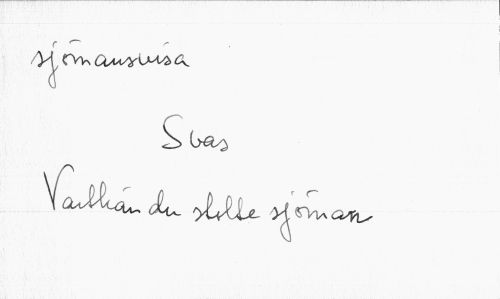 sjömansvisa
Svas
Varthän du stolte sjöman